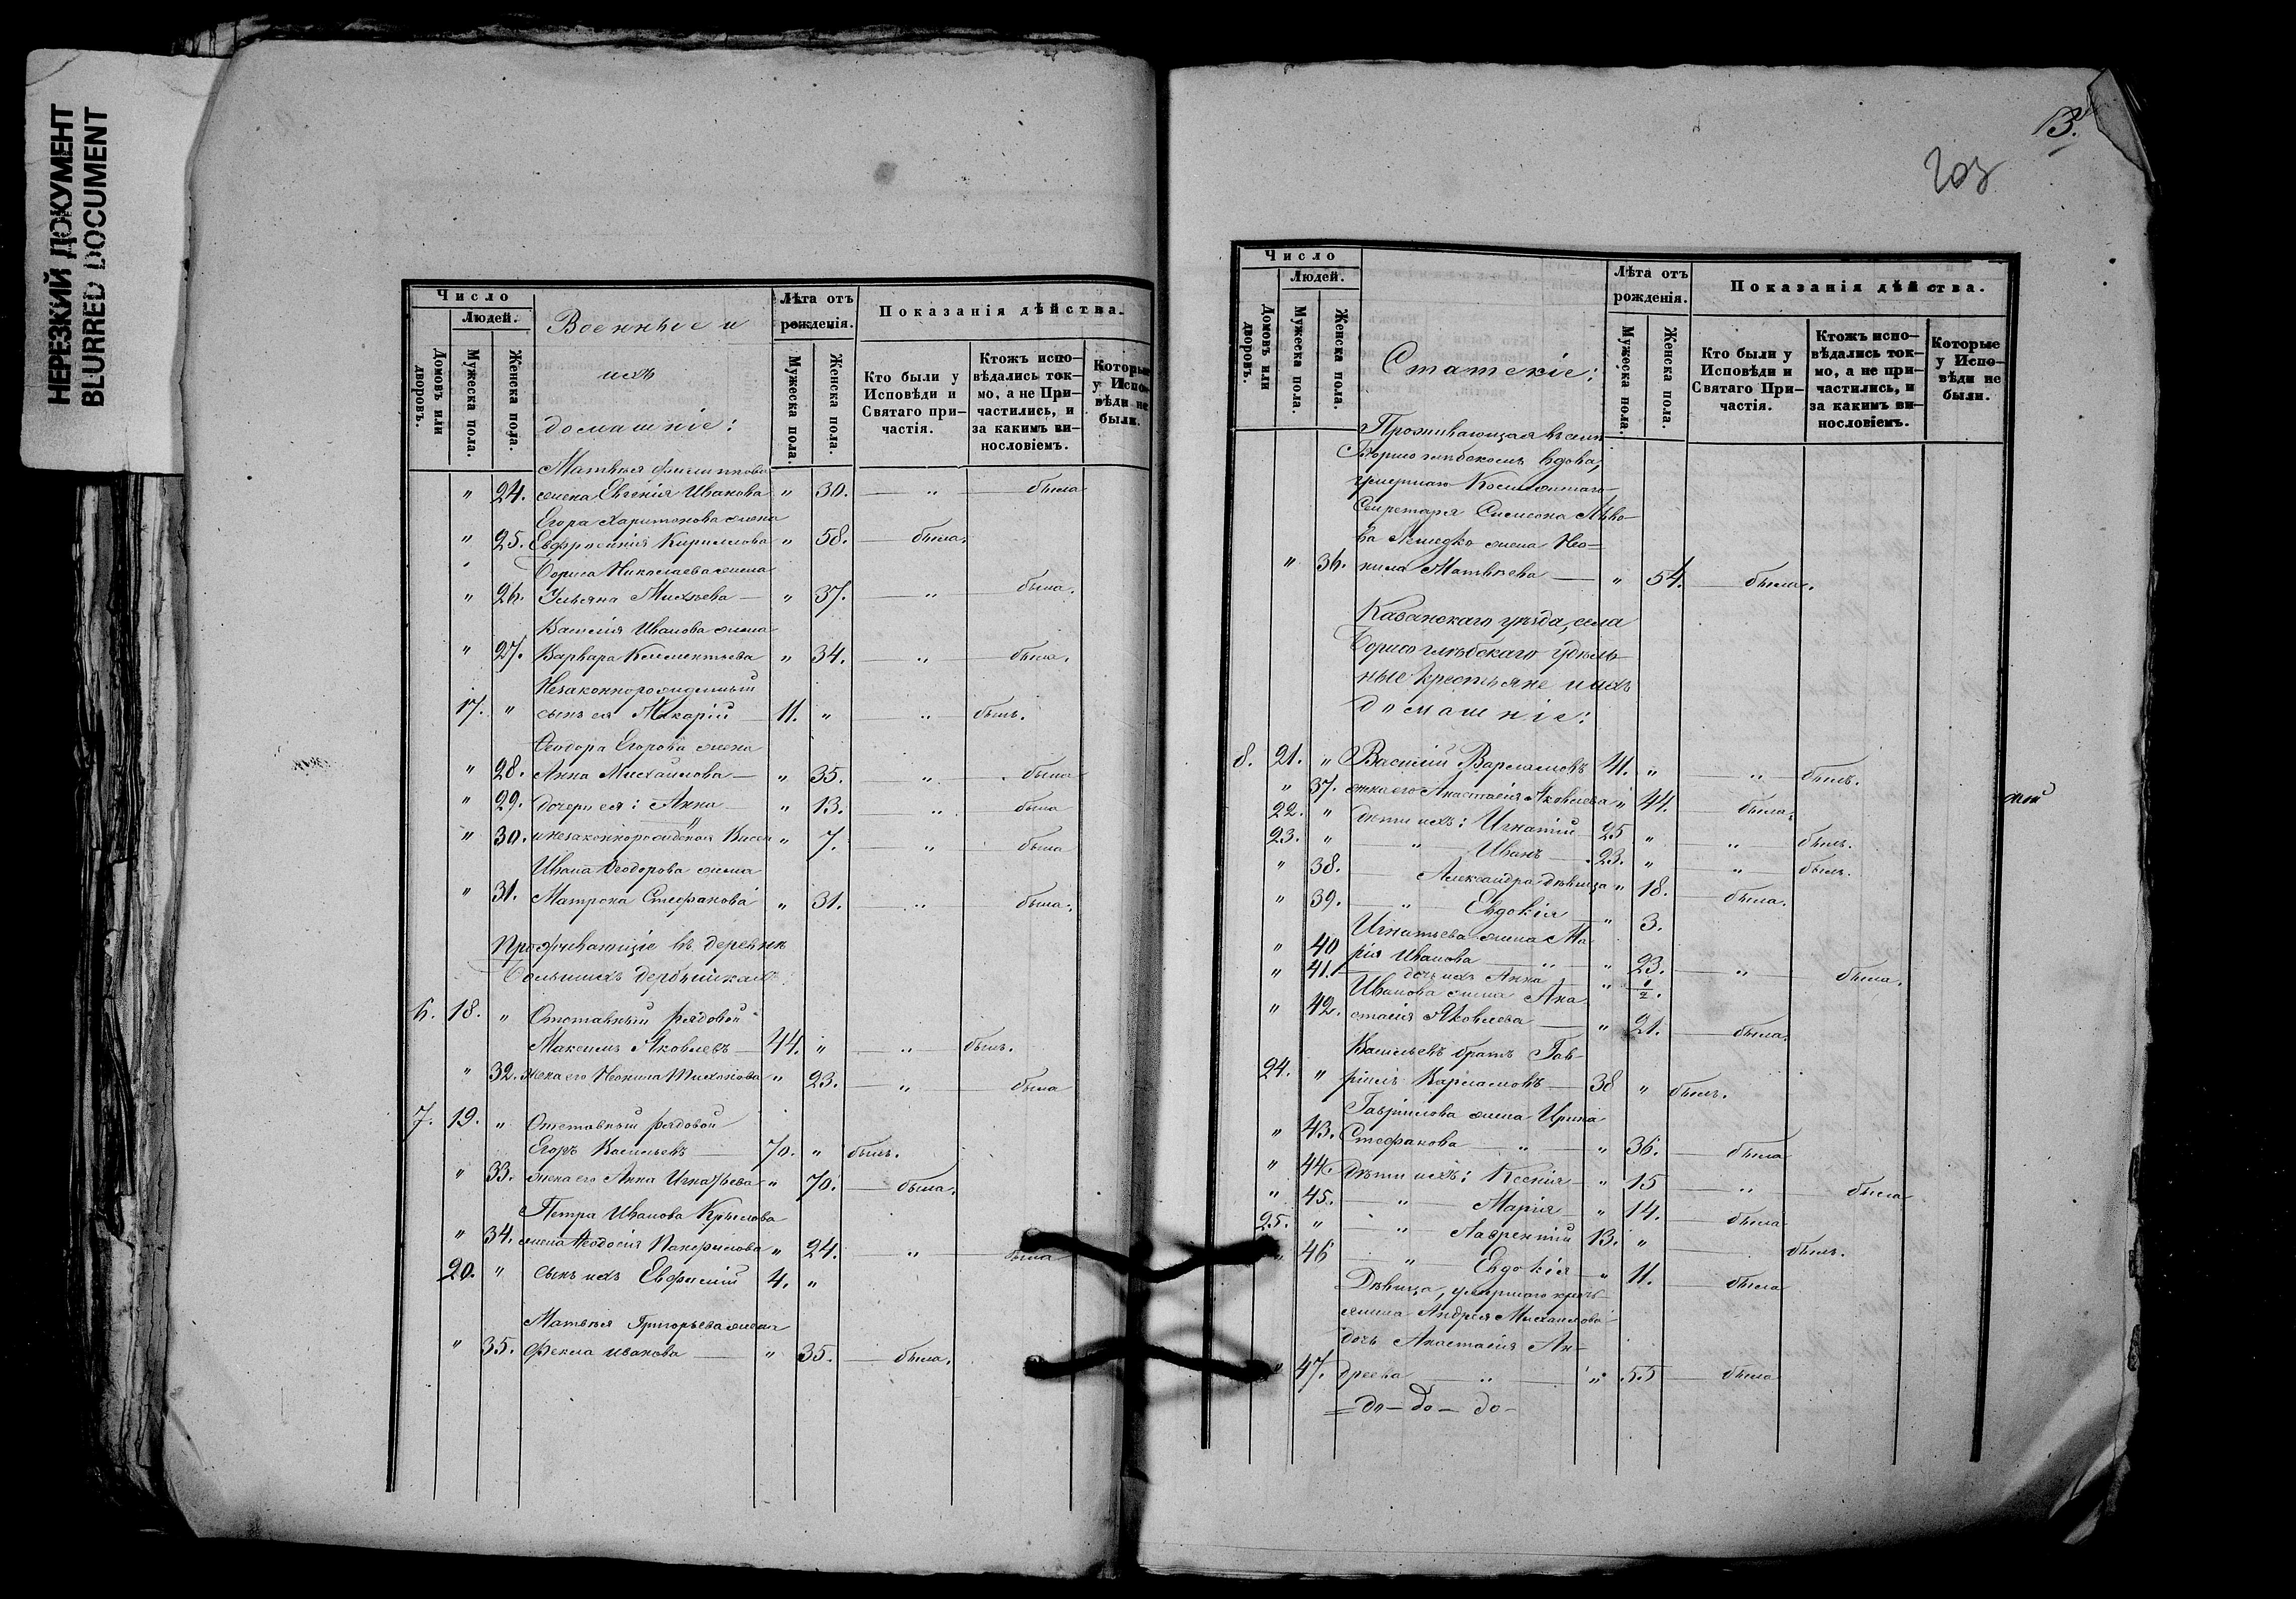 НЕРЕЗКИЙ ДОКУМЕНТ
BLURRED DOCUMENT
Число
Людей.
Домовъ или дворовъ.
Мужеска пола.
Женска пола.
Военные и
ихъ
домашніе:
Лѣта отъ рожденія.
Мужеска пола.
Женска пола.
Показанія дѣйства.
Кто были у Исповѣди и Святаго при-частія.
Ктожъ испо-вѣдались ток-мо, а не При-частились, и за какимъ ви-нословіемъ.
Которые у Испо-вѣди не были.
Матвѣя Филиппова
" 24. жена Евгенія Иванова " 30. " была
Егора Харитонова жена
" 25. Евфросинія Кириллова " 58. была.
Бориса Николаева жена
" 26. Ульяна Михѣева " 37. " была.
Василія Иванова жена
" 27. Варвара Клементьева " 34. " была.
Незаконнорожденный
17. " сынъ ея Макарій 11. " " былъ.
Ѳеодора Егорова жена
" 28. Анна Михайлова " 35. " была
" 29. дочери ея: Анна " 13. " была
" 30. и незаконнорожденная " 7. " была
Ивана Ѳеодорова жена
" 31. Матрона Стефанова " 31. " была.
Проживающіе въ деревнѣ
Большихъ Дербышкахъ:
6. 18. " Отставный рядовой
Максимъ Яковлевъ 44. " " былъ.
" 32. жена его Неонила Тихонова " 23. " была
7. 19. " Отставный рядовой
Егоръ Васильевъ 70. " былъ.
" 33. жена его Анна Игнатьева " 70. была.
Петра Иванова Крылова
" 34. жена Ѳеодосія Панфилова " 24. " была
20. " сынъ ихъ Евфимій 4. "
Матвѣя Григорьева жена
" 35. Фекла Иванова " 35. была.
13.
203
Число
Людей.
Домовъ или дворовъ.
Мужеска пола.
Женска пола.
Статскіе:
Лѣта отъ рожденія.
Мужеска пола.
Женска пола.
Показанія дѣйства.
Кто были у Исповѣди и Святаго При-частія.
Ктожъ испо-вѣдались ток-мо, а не при-частились, и за какимъ ви-нословіемъ.
Которые у Испо-вѣди не были.
Проживающая въ селѣ
Борисоглѣбскомъ вдова,
умершаго
Секретаря Симеона Льво-
ва жена Нео=
" 36. нила Матвѣева " 54. была.
Казанскаго уѣзда, села
Борисоглѣбскаго удѣль-
ные крестьяне и ихъ
домашніе:
8. 21. " Василій Варламовъ 41. " " былъ.
" 37. жена его Анастасія Яковлева " 44. была.
22. " дѣти ихъ: Игнатій 25 " " былъ.
23. " " Иванъ 23. " " былъ.
" 38. Александра дѣвица " 18. была.
" 39. " Евдокія " 3.
Игнатьева жена Ма-
" 40 рія Иванова " " 23. " была.
" 41. дочь ихъ Анна " 1/2.
Иванова жена Ана-
" 42. стасія Яковлева " 21. была.
Васильевъ братъ Гав-
24. " ріилъ Варламовъ 38 " былъ.
Гавріилова жена Ирина
" 43. Стефанова " " 36. была
" 44. дѣти ихъ: Ксенія " 15 " была
" 45. " Марія " 14. была
25. " " Лаврентій 13. " былъ.
" 46 " Евдокія " 11. была
Дѣвица, умершаго кресть-
янина Андрея Михайлова
дочь Анастасія Ан-
" 47. дреева " " 55 была
=до- до- до-